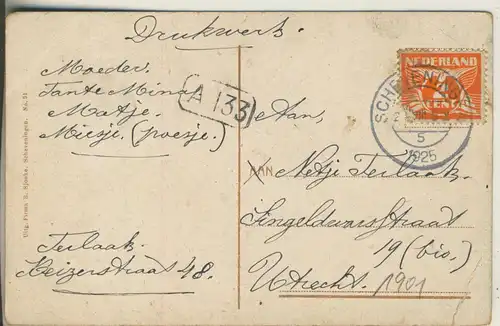 Drukwerk.
Moeder.
Tante Mina
Matje.
Miesje. (poesje).
Terlaak.
Keizerstraat 48.
A 133
NEDERLAND
CENT
SCHEVENINGEN
5
1925
Aan,
AAN
Netje Terlaak.
Singeldwarsstraat
19 (bis).
Utrecht.
1901
Uitg. Firma B. Sjouke, Scheveningen. No. 51